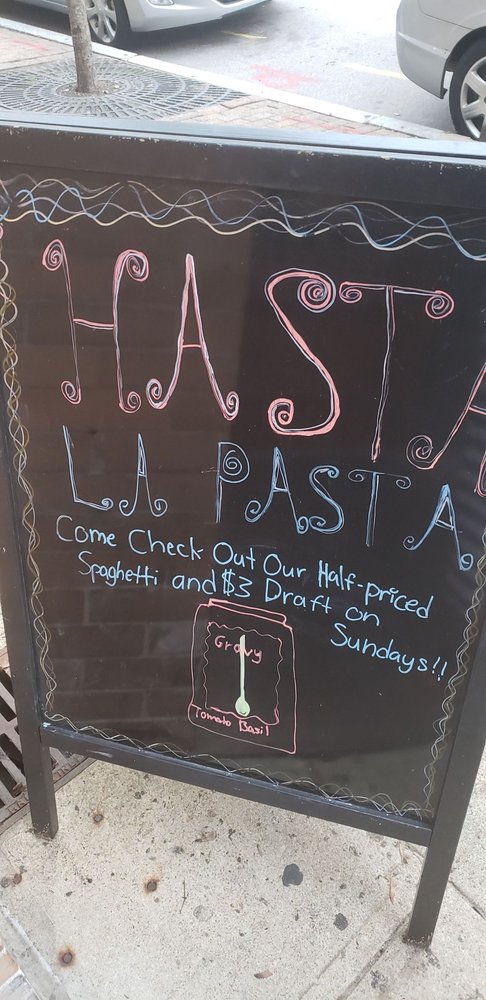 HASTA
LA PASTA
Come Check Out Our Half-priced
Spaghetti and $3 Draft on
Sundays!!
Gravy
Tomato Basil